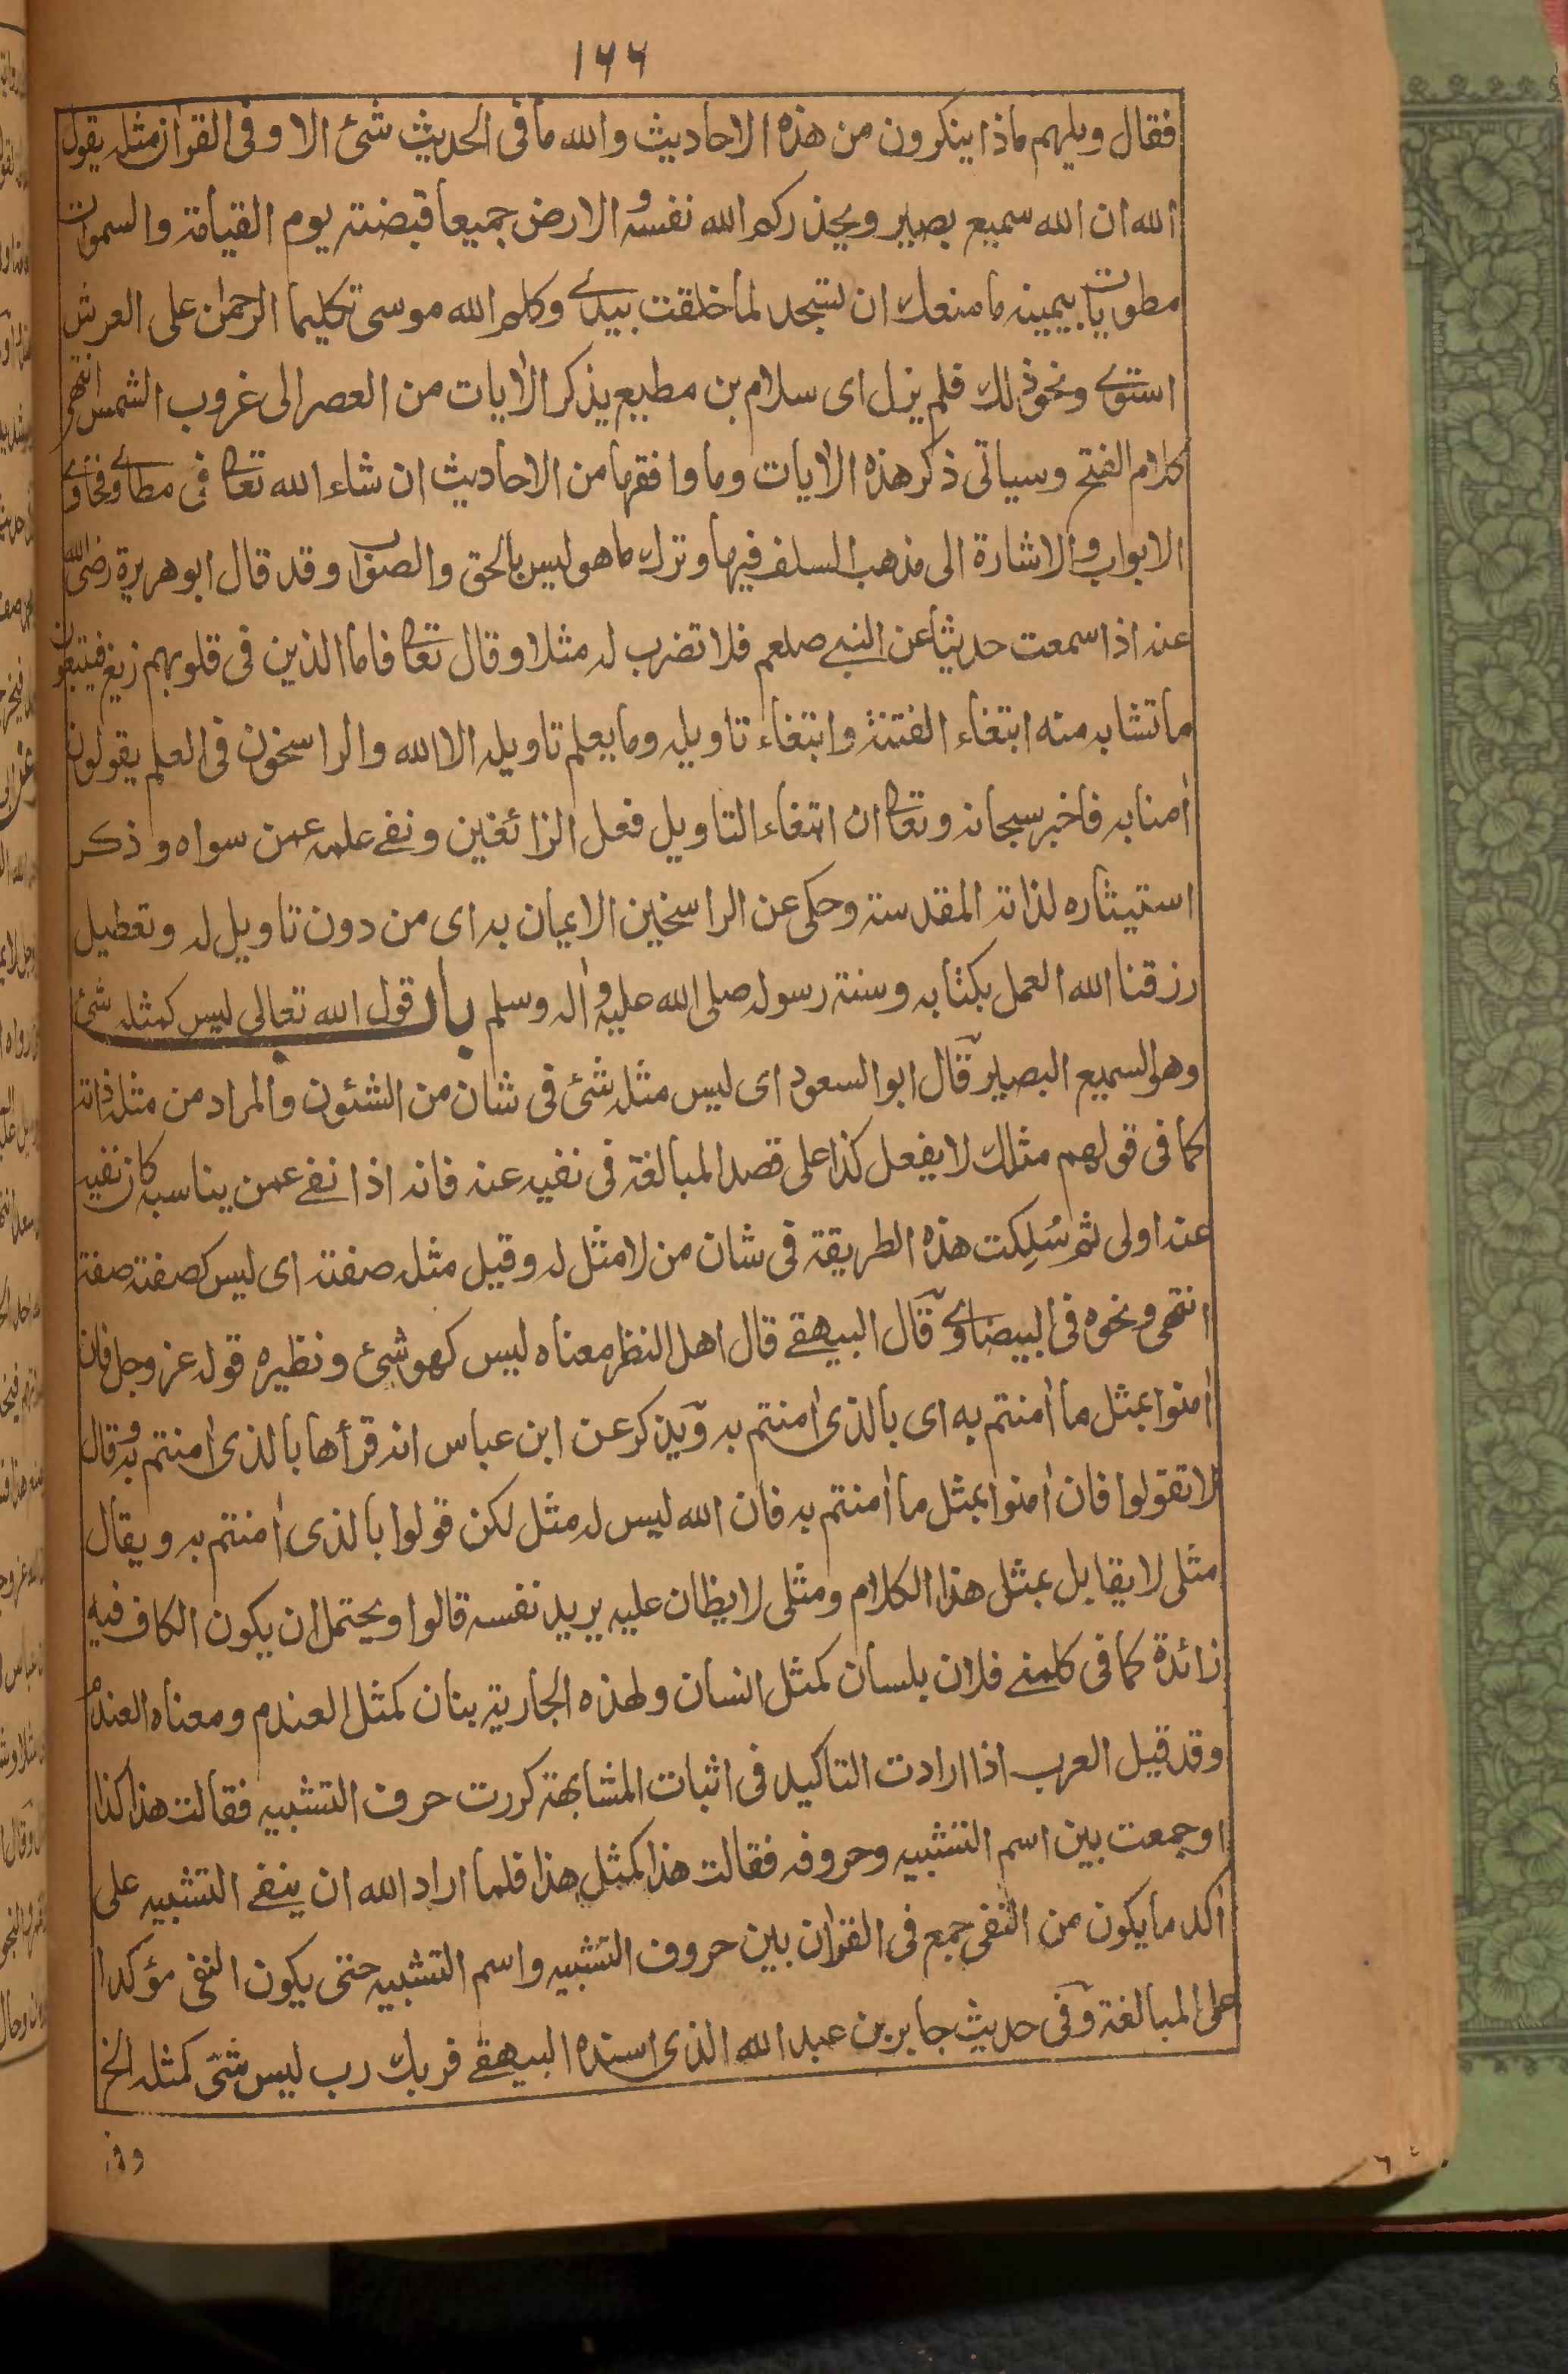 ١٦٦
فقال ويلهم ماذا ينكرون من هذه الاحاديث والله ما فى الحديث شئ الا وفى القرآن مثله يقول
الله ان الله سميع بصير ويحذركم الله نفسه و الارض جميعا قبضته يوم القيامة والسموات
مطويات بيمينه ما منعك ان تسجد لما خلقت بيدے وكلم الله موسى تكليما الرحمٰن على العرش
استوے ونحو ذلك فلم يزل اى سلام بن مطيع يذكر الاٰيات من العصر الى غروب الشمس انتهى
كلام الفتح وسياتى ذكر هذه الاٰيات وما وافقها من الاحاديث ان شاء الله تعالى فى مطاوے فحاوے
الابواب و الاشارة الى مذهب السلف فيها وترك ما هو ليس بالحق والصواب وقد قال ابو هريرة رضى الله
عنه اذا سمعت حديثا عن النبے صلعم فلا تضرب له مثلا وقال تعالى فاما الذين فى قلوبهم زيغ فيتبعون
ما تشابه منه ابتغاء الفتنة وابتغاء تاويله وما يعلم تاويله الا الله والراسخون فى العلم يقولون
اٰمنا به فاخبر سبحانه وتعالى ان ابتغاء التاويل فعل الزائغين ونفے علمه عمن سواه وذكر
استيثاره لذاته المقدسة وحكى عن الراسخين الايمان به اى من دون تاويل له وتعطيل
رزقنا الله العمل بكتابه وسنة رسوله صلى الله عليه و اٰله وسلم باب قول الله تعالى ليس كمثله شئ
وهو السميع البصير قال ابو السعود اى ليس مثله شئ فى شان من الشئون والمراد من مثله ذاته
كما فى قولهم مثلك لا يفعل كذا على قصد المبالغة فى نفيه عنه فانه اذا نفے عمن يناسبه كان نفيه
عنه اولى ثم سُلِكت هذه الطريقة فى شان من لا مثل له وقيل مثله صفته اى ليس كصفته صفة
انتهى ونحوه فى البيضاوے قال البيهقے قال اهل النظر معناه ليس كهو شئ ونظيره قوله عز وجل فان
اٰمنوا بمثل ما اٰمنتم به اى بالذى اٰمنتم به ويذكر عن ابن عباس انه قرأها بالذى اٰمنتم به و قال
لا تقولوا فان اٰمنوا بمثل ما اٰمنتم به فان الله ليس له مثل لكن قولوا بالذى اٰمنتم به ويقال
مثلى لا يقابل بمثل هذا الكلام ومثلى لا يظان عليه يريد نفسه قالوا ويحتمل ان يكون الكاف فيه
زائدة كما فى كلمنے فلان بلسان كمثل السنان ولهذه الجارية بنان كمثل العندم ومعناه العندم
وقد قيل العرب اذا ارادت التاكيد فى اثبات المشابهة كررت حرف التشبيه فقالت هذا كذا
او جمعت بين اسم التشبيه وحروفه فقالت هذا كمثل هذا فلما اراد الله ان ينفے التشبيه على
اٰكد ما يكون من النفى جمع فى القرآن بين حروف التشبيه واسم التشبيه حتى يكون النفى مؤكدا
على المبالغة وفى حديث جابر بن عبد الله الذى اسنده البيهقے فربك رب ليس شئ كمثله الخ